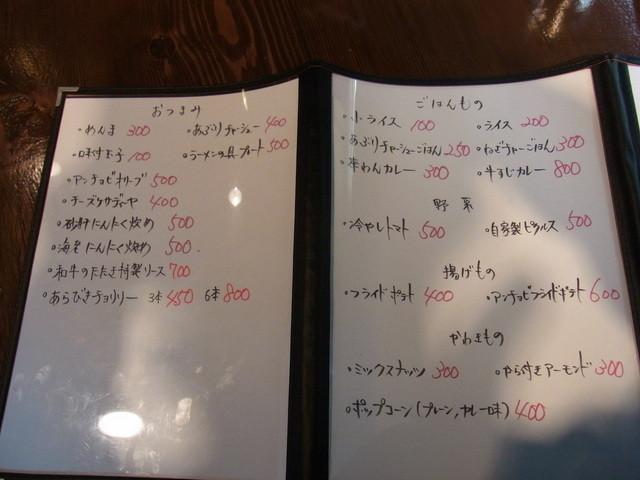 おつまみ
・めんま 300 ・あぶりチャーシュー 400
・味付玉子 100 ・ラーメンの具プレート 500
・アンチョビオリーブ 500
・チーズケサディーヤ 400
・砂肝にんにく炒め 500
・海老にんにく炒め 500
・和牛のたたき特製ソース 700
・あらびきチョリソー 3本 450 6本 800
ごはんもの
・小ライス 100 ・ライス 200
・あぶりチャーシューごはん 250 ・ねぎチャーごはん 300
・半わんカレー 300 ・牛すじカレー 800
野菜
・冷やしトマト 500 ・自家製ピクルス 500
揚げもの
・フライドポテト 400 ・アンチョビフライドポテト 600
かわきもの
・ミックスナッツ 300 ・から付きアーモンド 300
・ポップコーン(プレーン,カレー味) 400